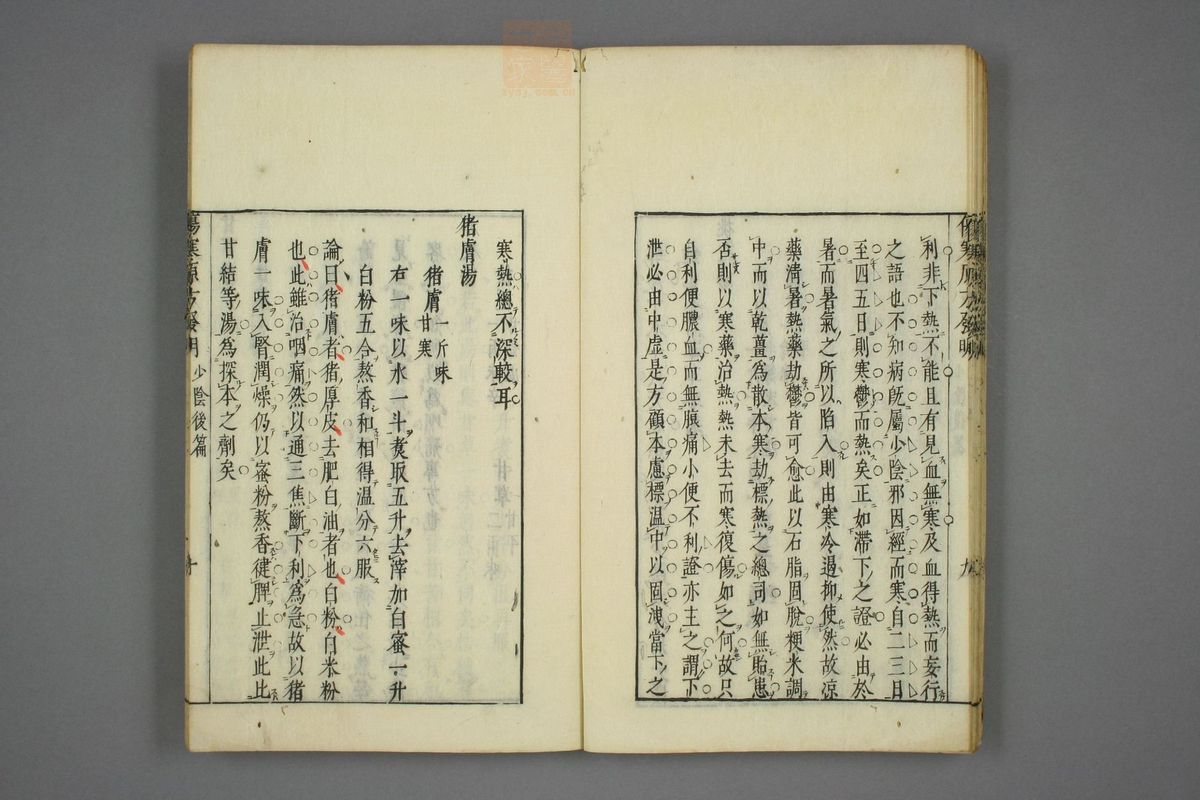 傷寒原方發明
利非下熱不能且有見血無寒及血得熱而妄行
之語也不知病既屬少陰邪因經而寒自二三日
至四五日則寒鬱而熱矣正如滯下之證必由於
暑而暑氣之所以陷入則由寒冷過抑使然故涼
藥淸暑熱藥劫鬱皆可愈此以石脂固脫粳米調
中而以乾薑爲散本寒劫標熱之總司如無貽患
否則以寒藥治熱熱未去而寒復傷如之何故只
自利便膿血而無腹痛小便不利證亦主之謂下
泄必由中虛是方顧本慮標溫中以固洩當下之
九
寒熱總不深較耳
猪膚湯
猪膚一斤味甘寒
右一味以水一斗煑取五升去滓加白蜜一升
白粉五合熬香和相得溫分六服
論曰猪膚者猪厚皮去肥白油者也白粉白米粉
也此雖治咽痛然以通三焦斷下利爲急故以猪
膚一味入腎潤燥仍以蜜粉熬香健脾止泄此比
甘結等湯爲探本之劑矣
傷寒原方發明 少陰後篇